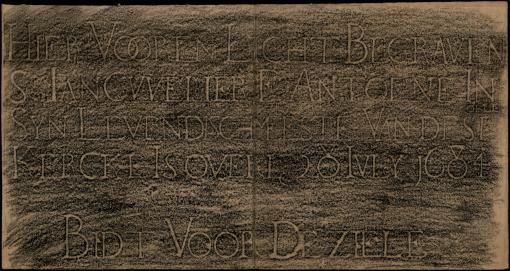 HIER VOOREN LEGHT BEGRAVEN
S. IAN CUVELIER F. ANTOENE IN
SYN LEVEN DISCH MEESTER VAN DESE
KERCKE IS OVERL 28 IVLY 1684
BIDT VOOR DE ZIELE